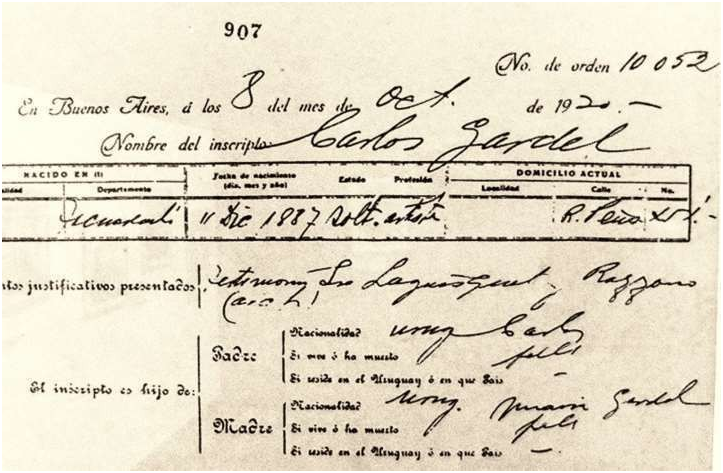 907
No. de orden 10 052
En Buenos Aires, á los 8 del mes de Oct. de 1920.-
Nombre del inscripto: Carlos Gardel
NACIDO EN (1) Fecha de nacimiento Estado Profesión DOMICILIO ACTUAL
lidad Departamento (día, mes y año) Localidad Calle No.
11 Dic 1887 Solt. artista R. Peña
ntos justificativos presentados y Razzano
Nacionalidad urug. Carlos
Padre Si vive ó ha muerto
Si reside en el Uruguay ó en que País
El inscripto es hijo de:
Nacionalidad urug. Gardel
Madre Si vive ó ha muerto
Si reside en el Uruguay ó en que País -